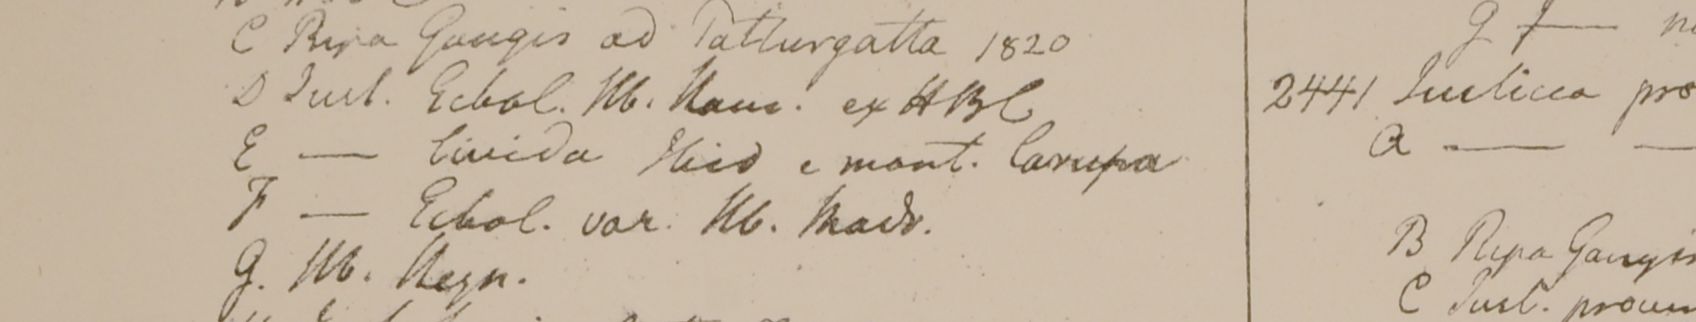 C Ripa Gangis ad Patturgatta 1820
D Just. Ecbol. Hb. Ham. ex HBC
E — livida Heid e mont. Carupa
F — Ecbol. var. Hb. Madr.
G. Hb. Heyn.
g f —
2441 Justicia pro
A — —
B Ripa Gangis
C Just. procum